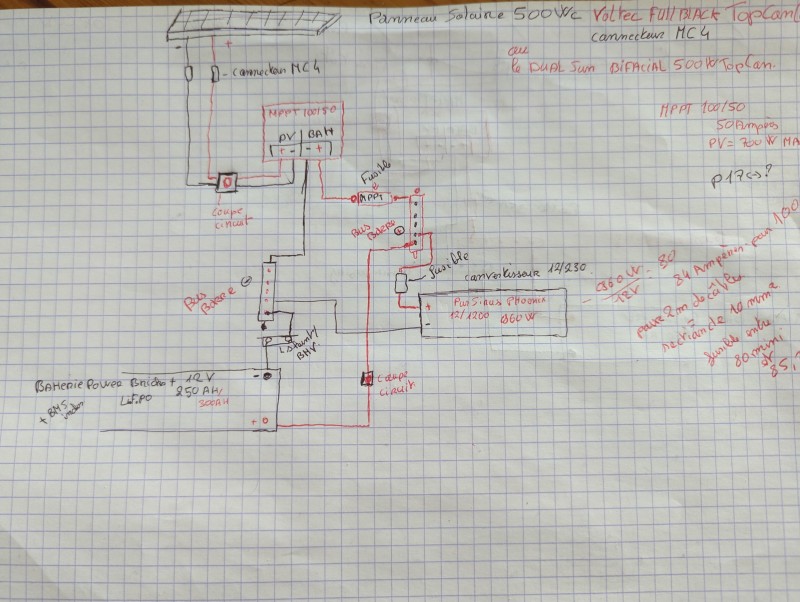 Panneau Solaire 500Wc Voltec Full BLACK TopCon
connecteur MC4
ou
le DUAL Sun BiFACIAL 500W TopCon.
- +
- connecteur MC4
MPPT 100/50
PV BAH
+ - - +
MPPT 100/50
50 Ampères
PV = 700 W MA
Fusible
MPPT
coupe
circuit
Bus
Barre +
fusible
convertisseur 12/230
Bus
Barre -
+ Pur Sinus Phoenix
12/1200 960W
-
960W = 80
12V
84 Ampères pour 100
pour 2m de câble
=
section de 10 mm²
fusible entre
80 mini
et
85
Shunt
BMV
coupe
circuit
Batterie Power Brick + 12V
LiFePO 250AH
300AH
+ BMS
-
+